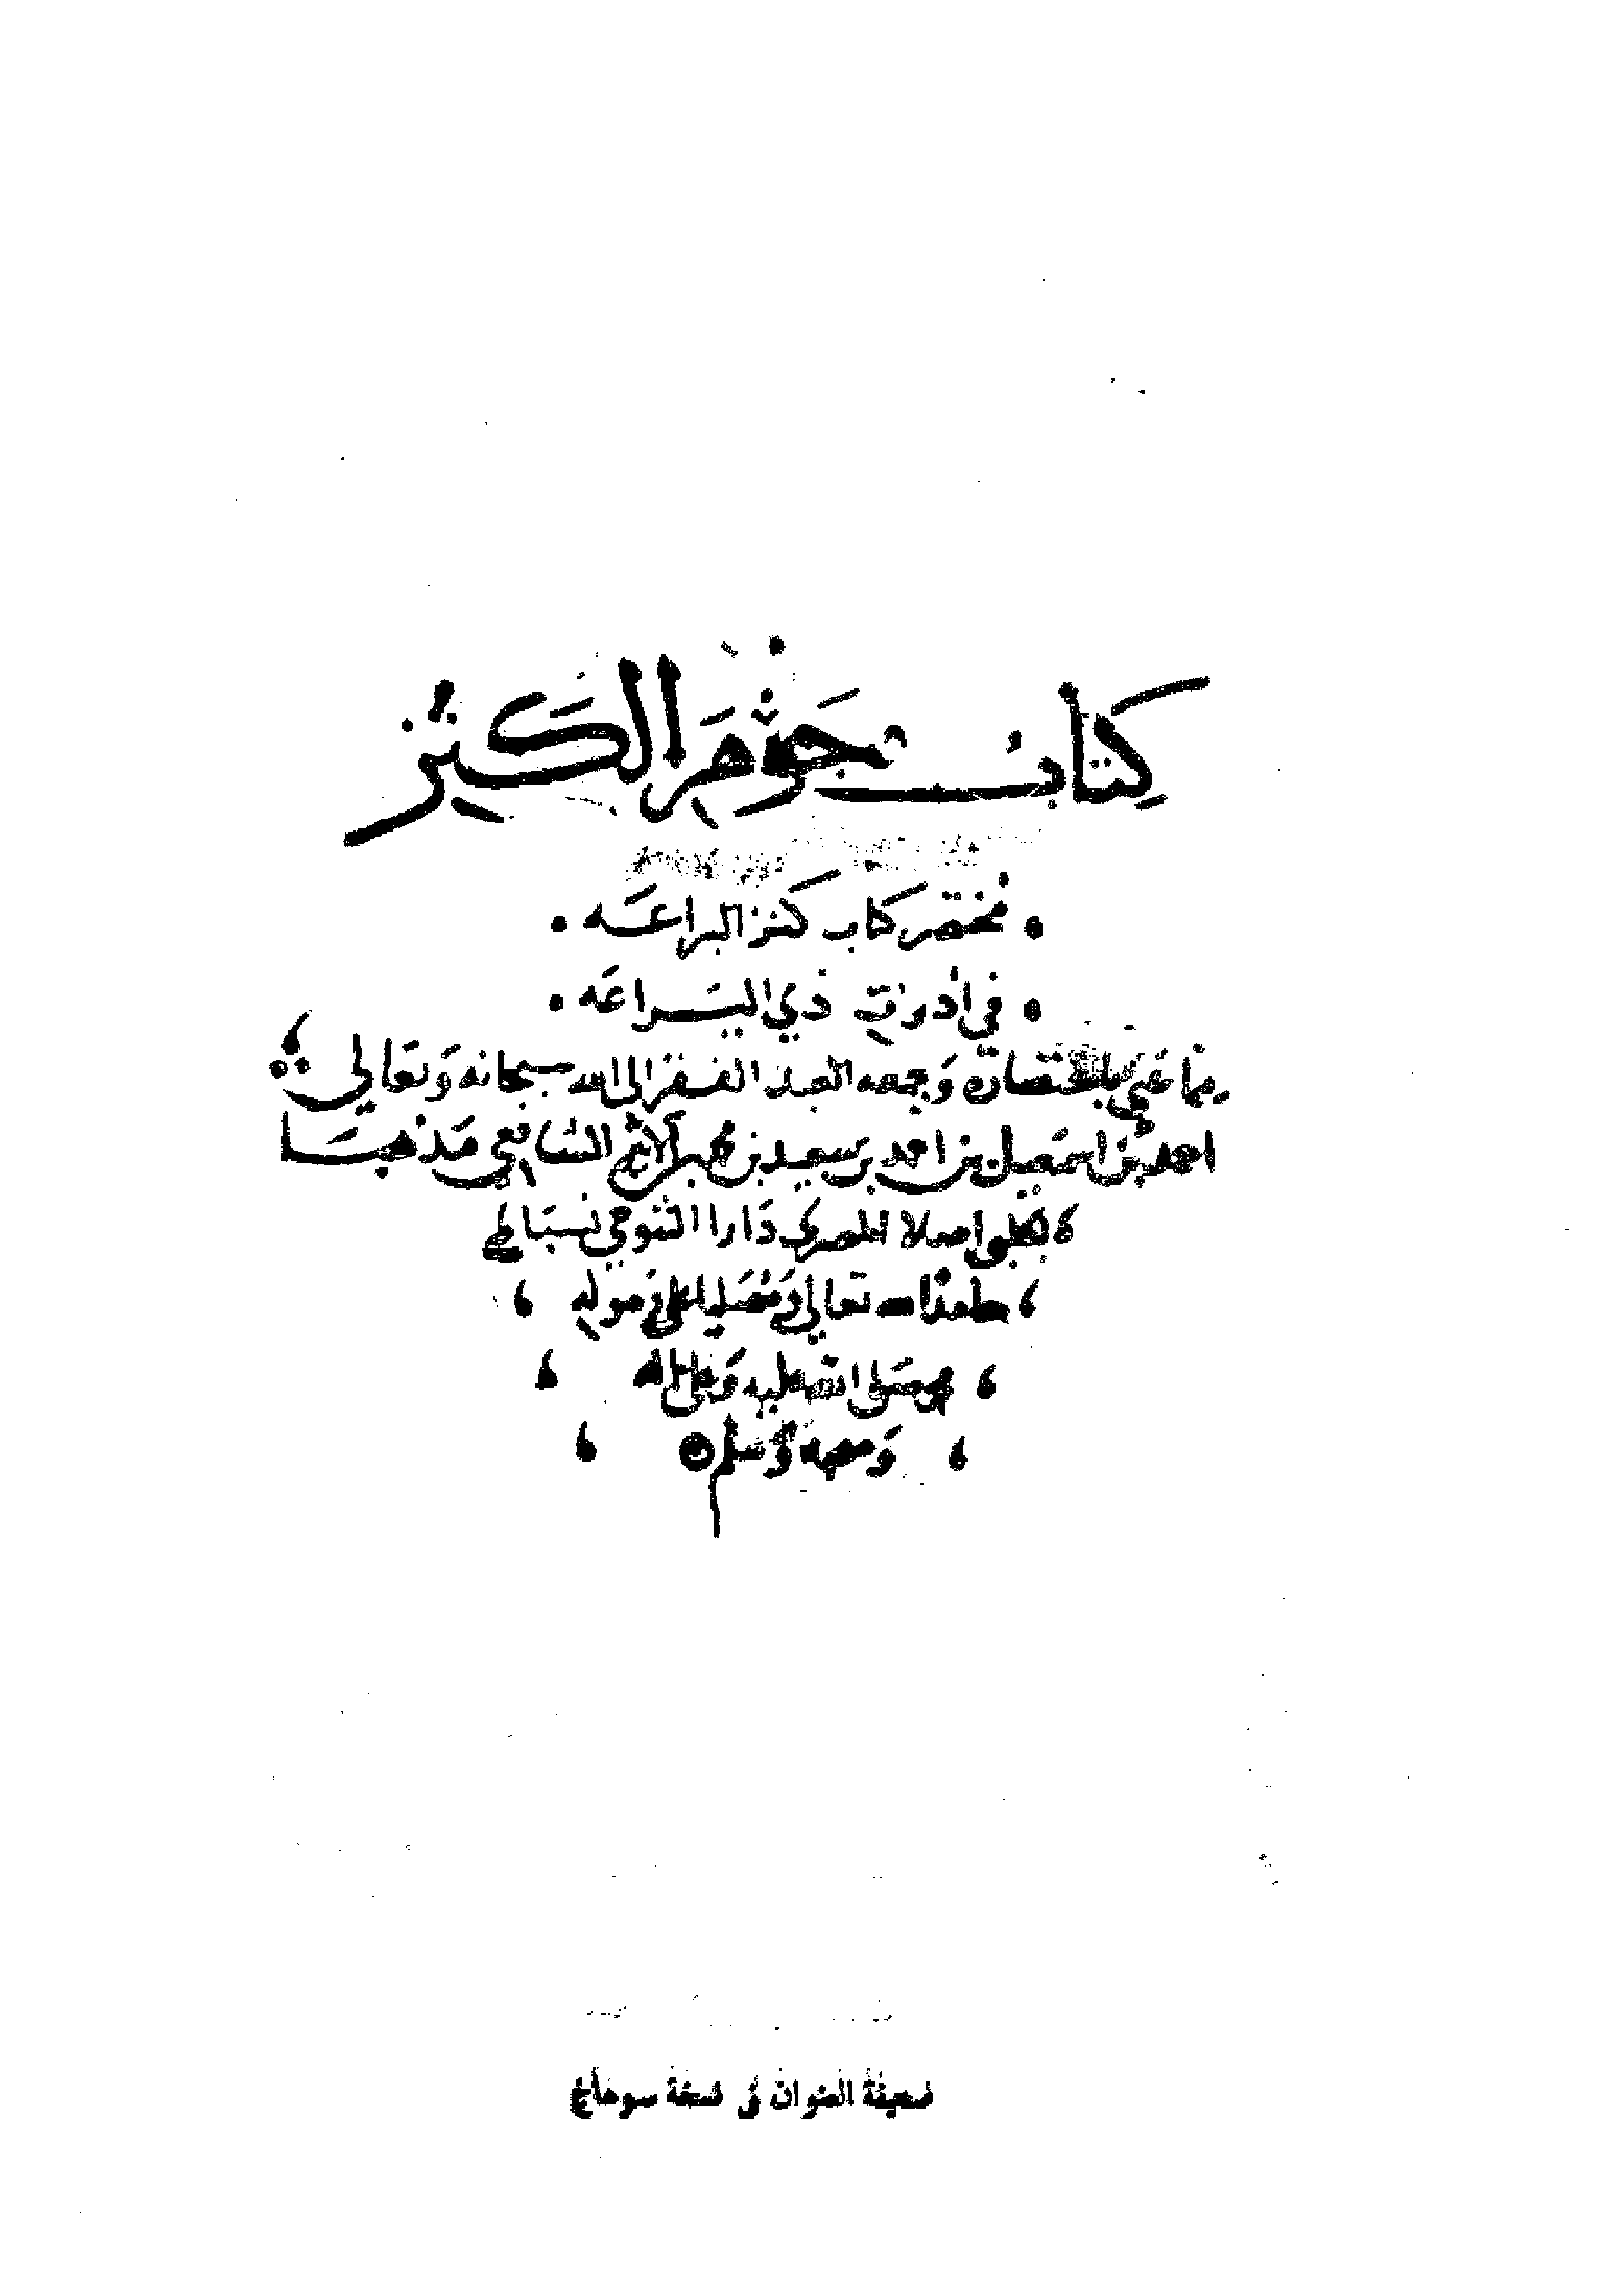 كتاب جوهر الكنز
مختصر كتاب كنز البراعه
في ادوات ذي اليراعه
مما عني باختصاره وجمعه العبد الفقير الى الله سبحانه وتعالى
احمد بن اسمعيل بن احمد بن سعيد بن محمد بن الاثير الشافعي مذهبا
الحلبي اصلا المصري دارا التنوخي نسبا
الله تعالى رسوله
محمد صلى الله عليه وعلى اله
وصحبه وسلم
صحيفة العنوان في نسخة سوهاج